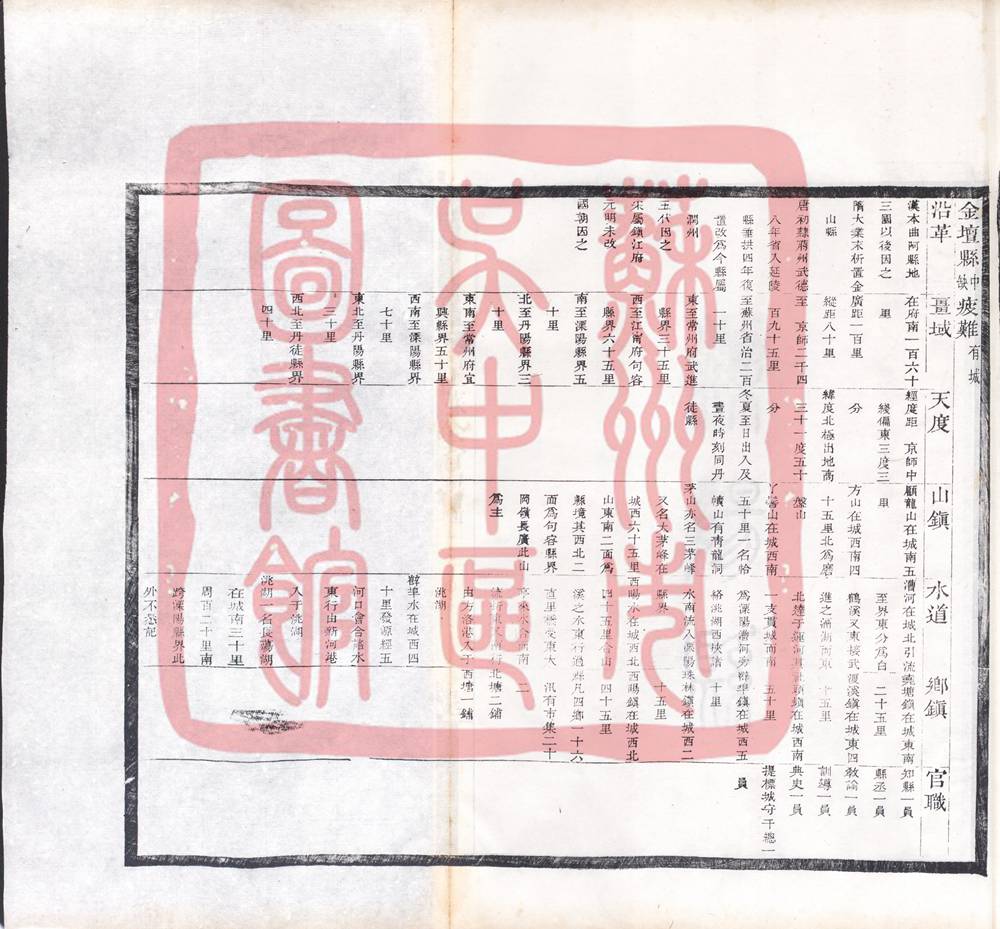 金壇縣中缺疲難有城
沿革
漢本曲阿縣地
三國以後因之
隋大業末析置金
山縣
唐初隸蔣州武德
八年省入延陵
縣垂拱四年復
置改為今縣屬
潤州
五代因之
宋屬鎮江府
元明未改
國朝因之
畺域
在府南一百六十
里
廣距一百里
縱距八十里
至 京師二千四
百九十五里
至蘇州省治二百
一十里
東至常州府武進
縣界三十五里
西至江甯府句容
縣界六十五里
南至溧陽縣界五
十里
北至丹陽縣界三
十里
東南至常州府宜
興縣界五十里
西南至溧陽縣界
七十里
東北至丹陽縣界
三十里
西北至丹徒縣界
四十里
天度
經度距 京師中
綫偏東三度三
分
緯度北極出地高
三十一度五十
分
冬夏至日出入及
晝夜時刻同丹
徒縣
山鎮
顧龍山在城南五
里
方山在城西南四
十五里北為磨
盤山
丫髻山在城西南
五十里一名恰
幘山有青龍洞
茅山亦名三茅峰
又名大茅峰在
城西六十五里
山東南二面為
縣境其西北二
面為句容縣界
岡嶺長廣此山
為主
水道
漕河在城北引流
至界東分為白
鶴溪又東接武
進之滆湖而東
北達于運河其
一支貫城而南
為溧陽漕河旁
絡洮湖西陜諸
水南流入溧陽
縣界
西暘水在城西北
四十五里合山
溪之水東行過
直里橋受東大
由方洛港入于
洮湖
薛埠水在城西四
十里發源經五
河口會合諸水
東行由新河港
入于洮湖
洮湖一名長蕩湖
在城南三十里
周百二十里南
跨溧陽縣界此
外不悉記
鄉鎮
堯塘鎮在城東南
二十五里
渡溪鎮在城東四
十五里
社頭鎮在城西南
五十里
薛埠鎮在城西五
十里
珠林鎮在城西二
十五里
西暘鎮在城西北
四十五里
凡四鄉一十六
汛有市集二十
二
北塘二鋪
西塘一鋪
官職
知縣一員
縣丞一員
教諭一員
訓導一員
典史一員
提標城守千總一
員
蘇州市
吳中區
圖書館